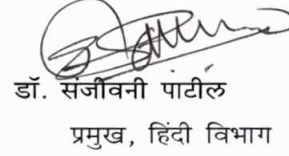 डॉ. संजीवनी पाटील
प्रमुख, हिंदी विभाग